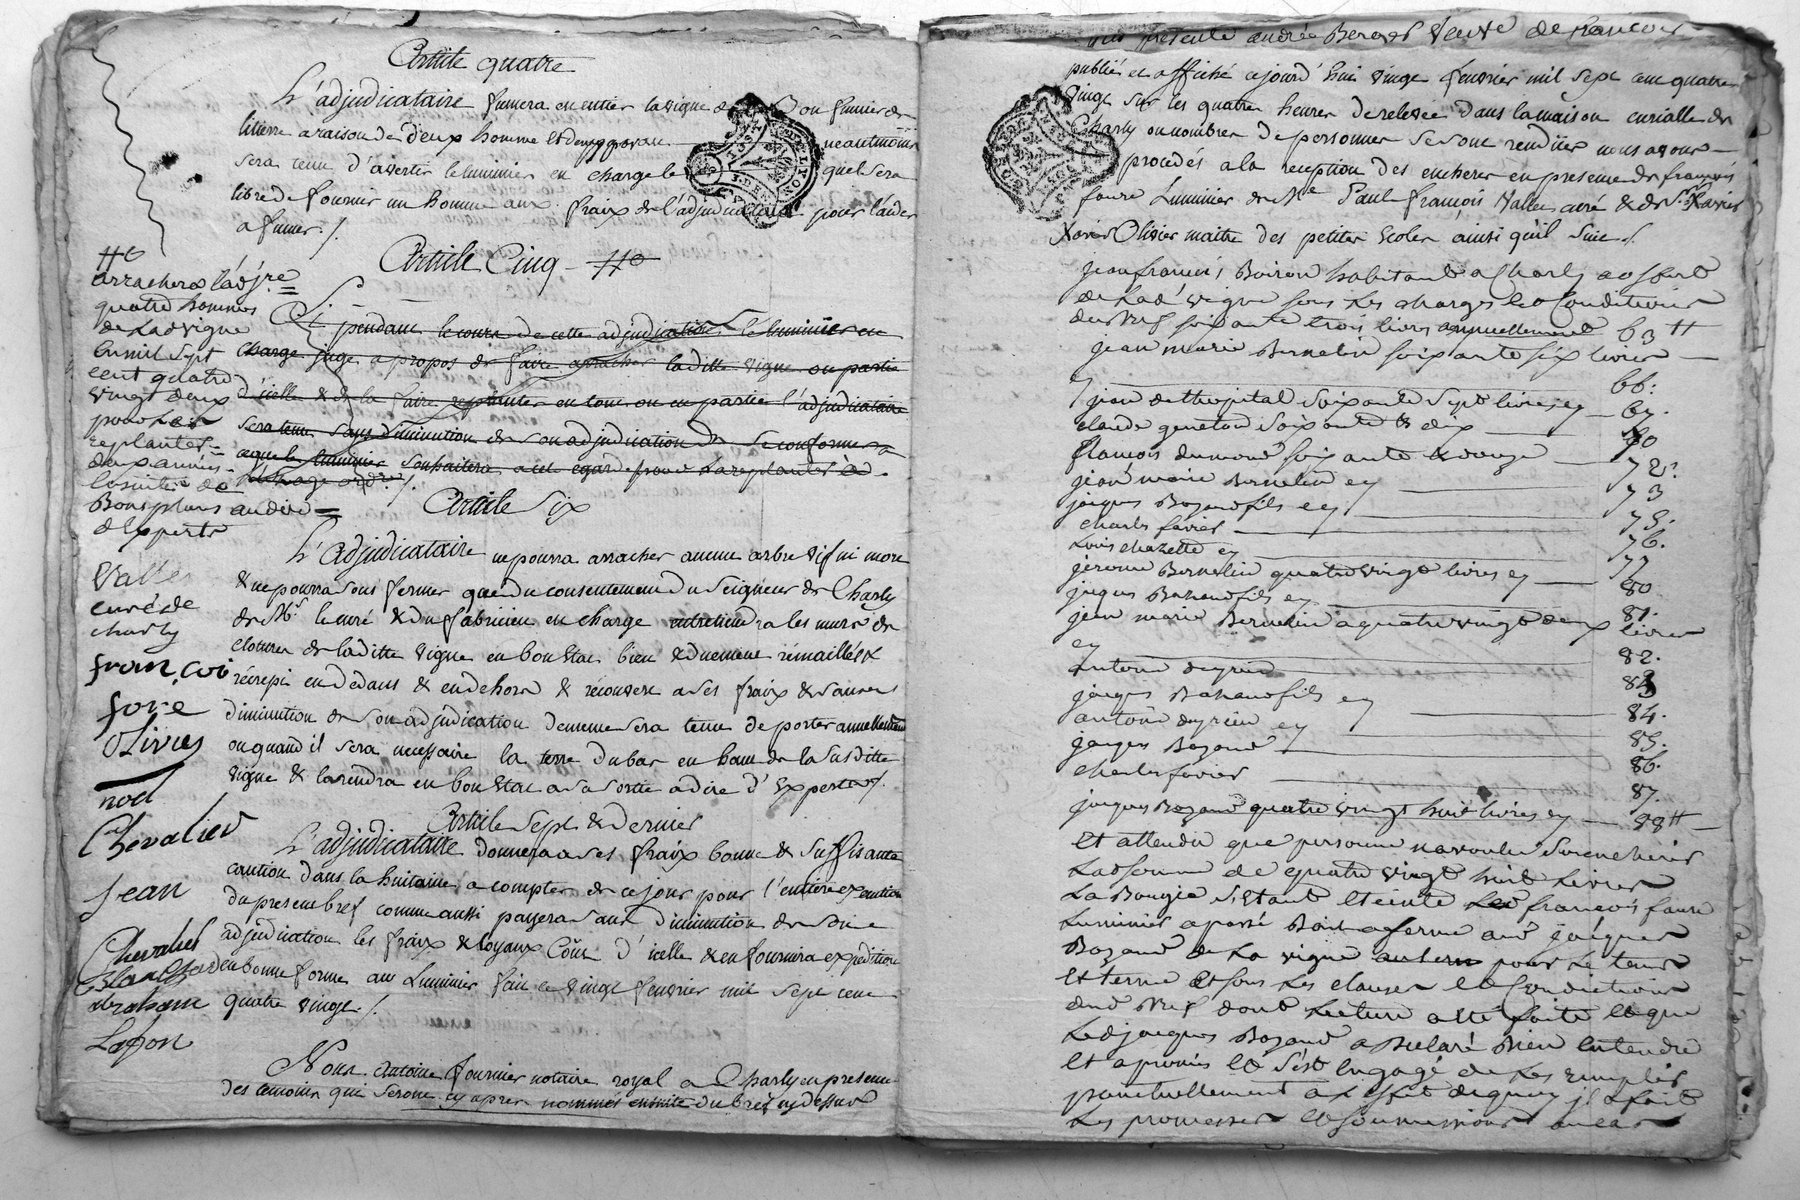 Article quatre
L'adjudicataire fumera en entier la vigne de bon fumier de
litierre a raison de deux homme neantmoins
sera tenu d'avertir le luminier en charge le quel sera
libre de fournir un homme aux fraix de l'adjudicataire pour l'aider
a fumer ./.
Article Cinq
Si pendant le cours de cette adjudication le luminier en
charge juge a propos de faire arracher laditte vigne ou partie
d'icelle & de la faire replanter en tout ou en partie l'adjudicataire
sera tenu sans diminution de son adjudication de se conformer a
ce que le luminier souhaitera a cet egard
arrachera l'adj.re
quatre hommes
de lad vigne
en mil sept
cent quatre
vingt deux
pour les
replanter
deux années
la suite de
Bons plans au dire
d'experts
Valle
curé de
charly
françoi
fore
Olivier
noel
Chevalier
jean
Chevalier
abraham
Lafon
Article Six
L'adjudicataire ne pourra arracher aucun arbre vif ni mort
& ne pourra sous fermer que du consentement du Seigneur de Charly
de Mr. le curé & du fabricien en charge entretiendra les murs de
cloture de laditte vigne en bon Etat bien & duement rémaillés &
récrepi en dedans & en dehors & récouvert a ses fraix & sans
diminution de son adjudication de meme sera tenu de porter annuellement
ou quand il sera necessaire la terre du bas en haut de la susditte
vigne & la rendra en bon Etat a sa sortie a dire d'Experts ./.
Article Sept & dernier
L'adjudicataire donnera a ses fraix bonne & suffisante
caution dans la huitaine a compter de ce jour pour l'entiere execution
du present bref comme aussi payera sans diminution de son
adjudication les fraix & loyaux Coûts d'icelle & en fournira expedition
en bonne forme au Luminier fait ce vingt fevrier mil sept cent
quatre vingt ./.
Nous Antoine fournier notaire royal a Charly en presence
des temoins qui seront cy apres nommés ensuite du bref cy dessus
presente andrée veuve de francois
publié et affiché ajourd'hui vingt fevrier mil sept cent quatre
vingt sur les quatre heures de relevée dans la maison curialle de
Charly ou nombre de personnes se sont rendues nous avons
procedés a la reception des encheres en presence de françois
faure Luminier de Me Paul françois Valle curé & de Sr. Xavier
Xavier Olivier maitre des petites Ecoles ainsi qu'il suit ./.
jean francois Boiron habitant a Charly a offert
de lad vigne sous les charges et Conditions
du bref soixante trois livres annuellement 63 ll
jean marie Bernelin soixante six livres
cy 66.
jean de lhopital soixante sept livres cy 67.
claude soixante & dix 70
francois dumond soixante & douze 72.
jean marie Bernelin cy 73
jacques Bazand fils cy 75.
charles favier 76.
Louis chazette cy 77
jerome Bernelin quatre vingt livres cy 80
jacques Bazand fils cy 81.
jean marie Bernelin a quatre vingt deux livres
cy 82.
antoine deyrieu 83
jacques Bazand fils cy 84.
antoine deyrieu cy 85.
jacques Bazand 86.
charles favier 87.
jacques Bazand quatre vingt huit livres cy 88 ll
Et attendu que personne na voulu surencherir
la somme de quatre vingt huit livres
la Bougie s'étant eteinte led francois faure
Luminier a passé Bail a ferme aud jacques
Bazand de la vigne pour le tems
et terme et sous les clauses et Conditions
dud bref dont lecture a été faite et que
led jacques Bazand a declaré bien entendre
et a promis et s'est engagé de les remplir
ponctuellement a l'effet de quoy il a fait
les promesses et soumissions